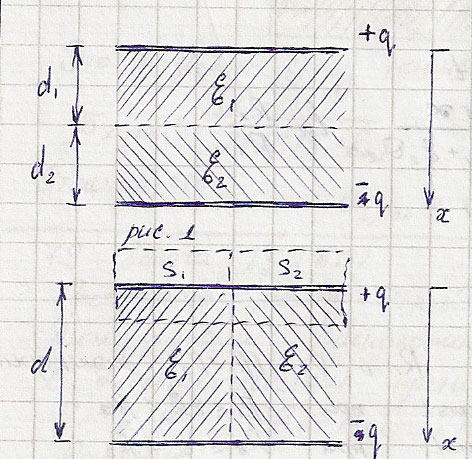 +q
d₁
ε₁
d₂
ε₂
-q
x
рис. 1
S₁ S₂
+q
d
ε₁ ε₂
-q
x